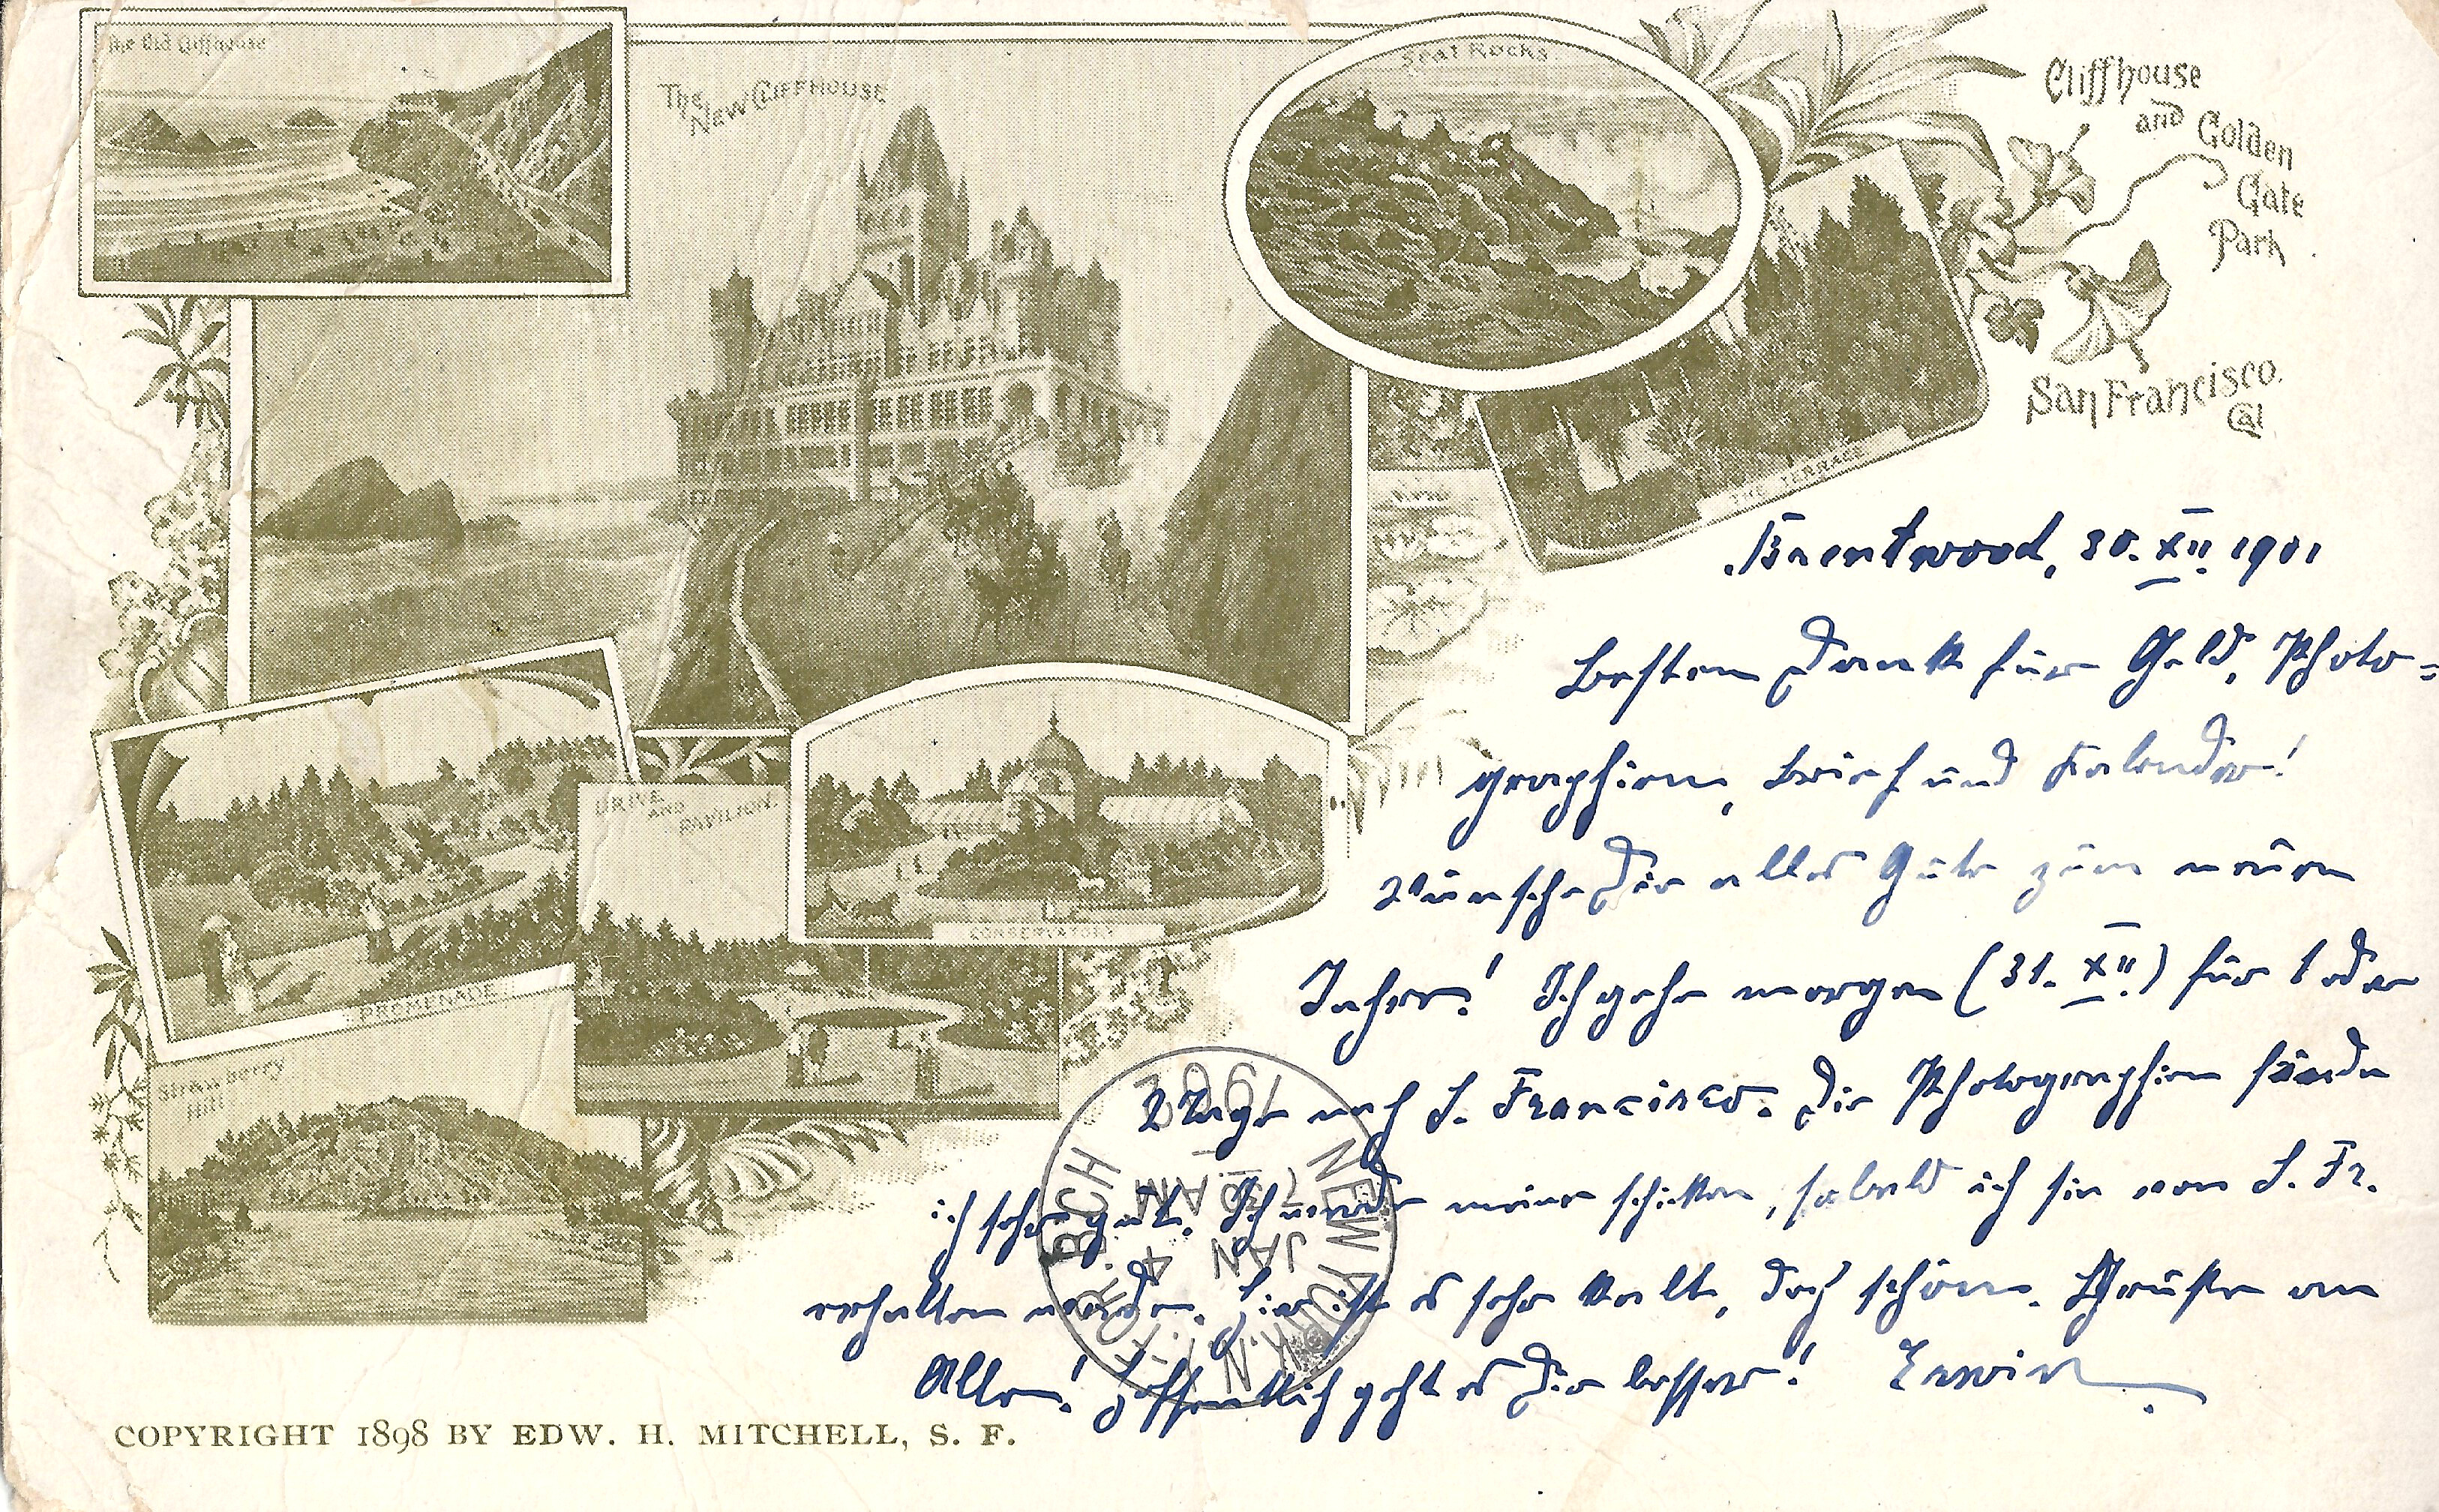 The Old Cliffhouse
The
New Cliffhouse
Seal Rocks.
Cliffhouse
and Golden
Gate
Park
San Francisco.
Cal
THE TERRACE
DRIVE
AND
PAVILION.
CONSERVATORY
PROMENADE
Strawberry
Hill
Brentwood, 30. XII. 1901
Besten Dank für Geld, Photo=
graphien, Brief und Kalender!
Wünsche Dir alles Gute zum neuen
Jahre! Ich gehe morgen (31. XII.) für 1 oder
2 Tage nach S. Francisco. Die Photographien finde
ich sehr gut. Ich werde meine schicken, sobald ich sie von S. Fr.
erhalten werde. Hier ist es sehr kalt, doch schön. Grüße an
Alle! Hoffentlich geht es Dir besser! Erwin.
NEW YORK, N.Y. FOR. BCH
JAN 4
7 30 AM
1902
COPYRIGHT 1898 BY EDW. H. MITCHELL, S. F.